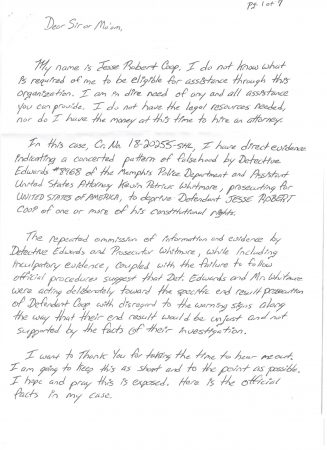 Pg 1 of 7
Dear Sir or Ma'am,
My name is Jesse Robert Coop. I do not know what
is required of me to be eligible for assistance through this
organization. I am in dire need of any and all assistance
you can provide. I do not have the legal resources needed,
nor do I have the money at this time to hire an attorney.
In this case, Cr. No. 18-20255-SHL, I have direct evidence
indicating a concerted pattern of falsehood by Detective
Edwards #8968 of the Memphis Police Department and Assistant
United States Attorney Kevin Patrick Whitmore, prosecuting for
UNITED STATES OF AMERICA, to deprive Defendant JESSE ROBERT
COOP of one or more of his constitutional rights.
The repeated ommission of information and evidence by
Detective Edwards and Prosecutor Whitmore, while including
inculpatory evidence, coupled with the failure to follow
official procedures suggest that Det. Edwards and Mr. Whitmore
were acting deliberately toward the specific end result prosecution
of Defendant Coop with disregard to the warning signs along
the way that their end result would be unjust and not
supported by the facts of their investigation.
I want to Thank You for taking the time to hear me out.
I am going to keep this as short and to the point as possible.
I hope and pray this is exposed. Here is the official
facts in my case.